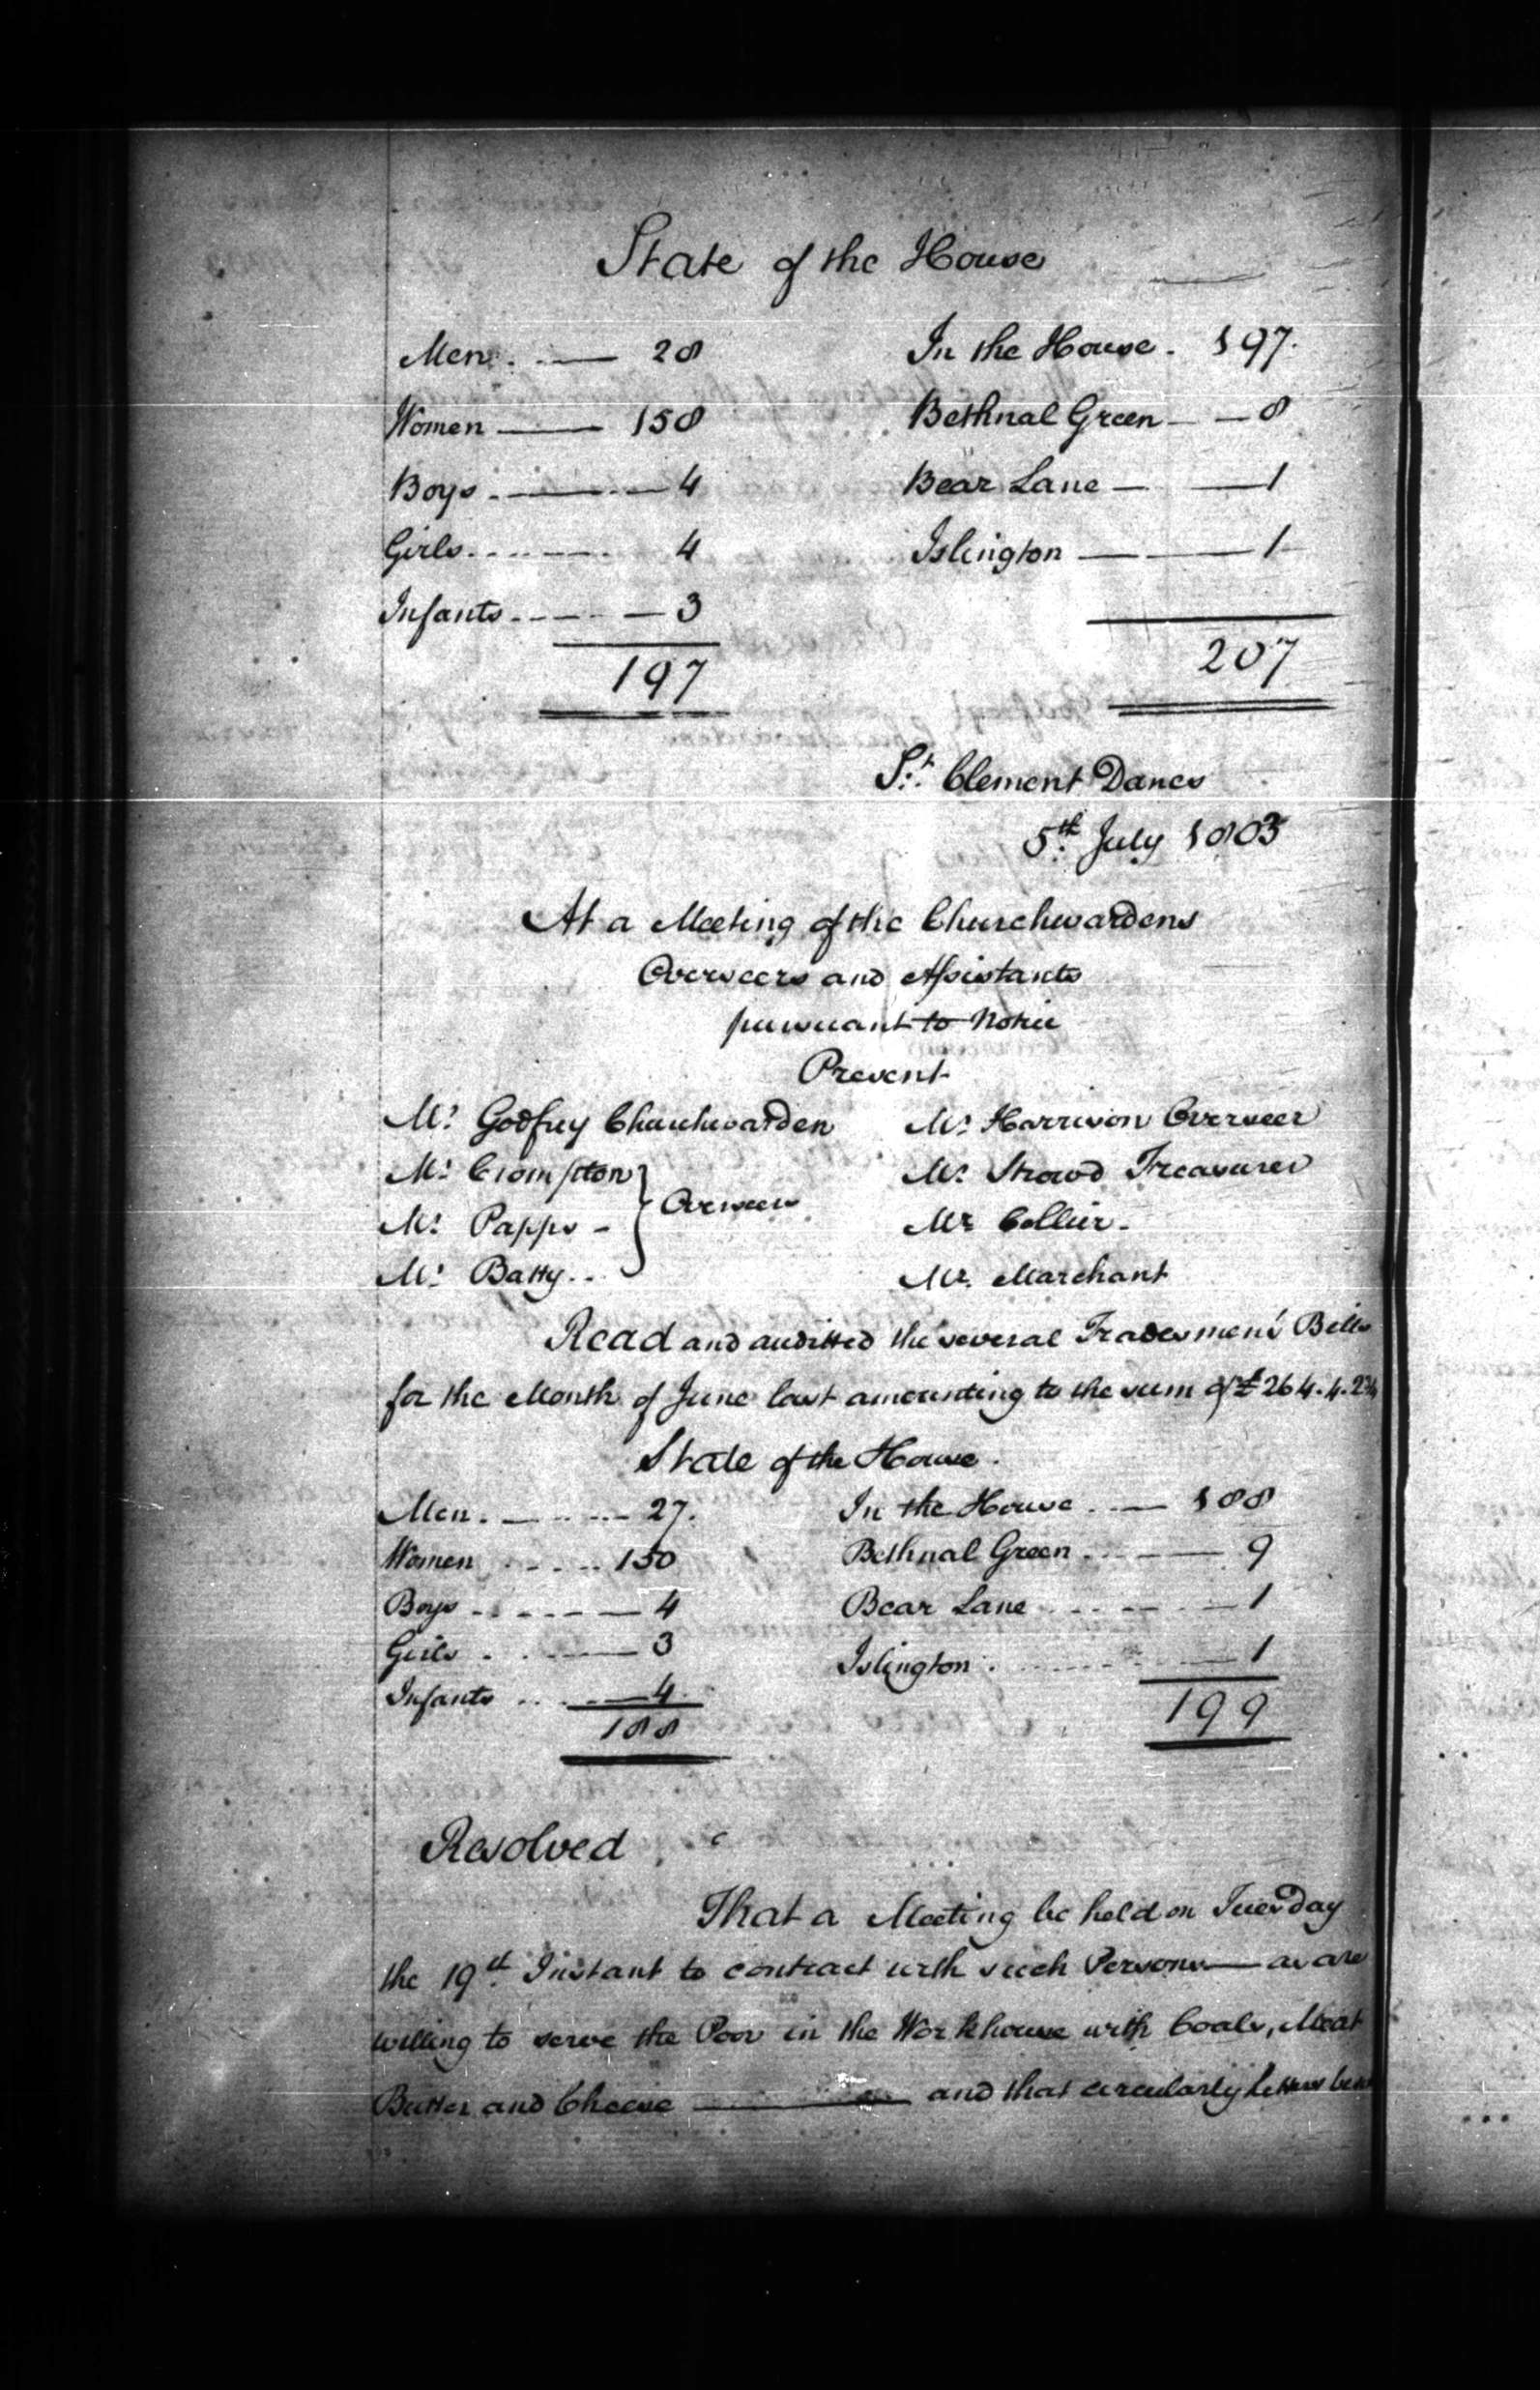 State of the House
Men . —— 28 In the House . 197.
Women —— 158 Bethnal Green — — 8
Boys —— 4 Bear Lane — — 1
Girls ------ 4 Islington — — 1
Infants ---- 3
197 207
St. Clement Danes
5th. July 1803
At a Meeting of the Churchwardens
Overseers and Assistants
pursuant to Notice
Present
Mr. Godfrey Churchwarden Mr. Harrison Overseer
Mr. Crompton Mr. Strowd Treasurer
Mr. Papps - } Overseers Mr. Collier -
Mr. Batty .. Mr. Marchant
Read and auditted the several Tradesmens' Bills
for the Month of June last amounting to the sum of £264.4.2¾
State of the House .
Men . — .. --- 27. In the House . — 188
Women . . . . . 150 Bethnal Green . — 9
Boys ------ 4 Bear Lane ------ 1
Girls . . —— 3 Islington . ------ 1
Infants .. . — 4.
188 199
Resolved
That a Meeting be held on Tuesday
the 19th. Instant to contract with such Persons — as are
willing to serve the Poor in the Workhouse with Coals, Meat
Butter and Cheese —— and that circularly Letters